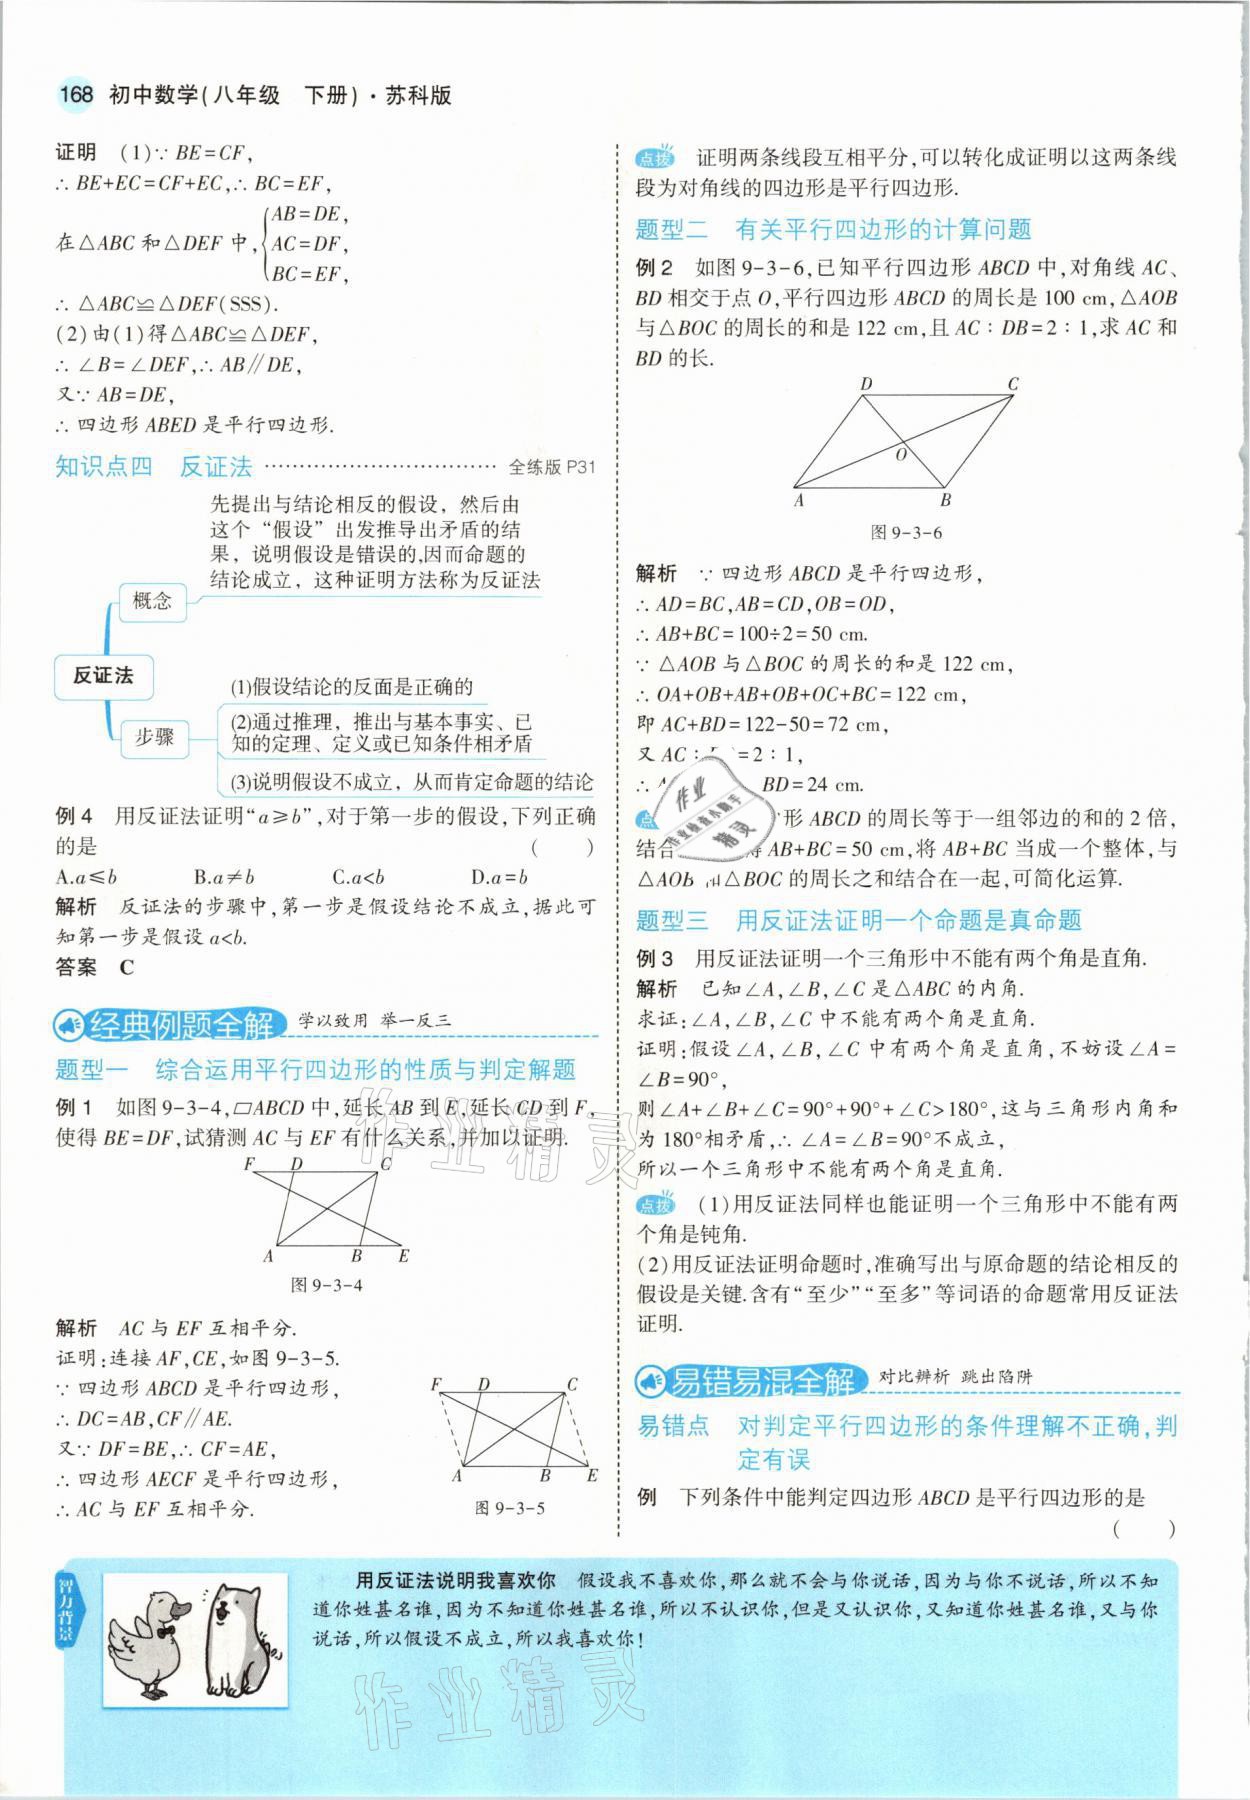 168 初中数学(八年级 下册)·苏科版
证明 (1)∵BE=CF,
∴BE+EC=CF+EC,∴BC=EF,
AB=DE,
在△ABC和△DEF中,
AC=DF,
BC=EF,
∴△ABC≌△DEF(SSS).
(2)由(1)得△ABC≌△DEF,
∴∠B=∠DEF,∴AB∥DE,
又∵AB=DE,
∴四边形ABED是平行四边形.
知识点四 反证法 全练版P31
先提出与结论相反的假设，然后由
这个“假设”出发推导出矛盾的结
果，说明假设是错误的,因而命题的
结论成立，这种证明方法称为反证法
概念
反证法
步骤
(1)假设结论的反面是正确的
(2)通过推理，推出与基本事实、已
知的定理、定义或已知条件相矛盾
(3)说明假设不成立，从而肯定命题的结论
例4 用反证法证明“a≥b”,对于第一步的假设,下列正确
的是 ( )
A.a≤b B.a≠b C.a<b D.a=b
解析 反证法的步骤中,第一步是假设结论不成立,据此可
知第一步是假设a<b.
答案 C
经典例题全解 学以致用 举一反三
题型一 综合运用平行四边形的性质与判定解题
例1 如图9-3-4,▱ABCD中,延长AB到E,延长CD到F,
使得BE=DF,试猜测AC与EF有什么关系,并加以证明.
F D C
A B E
图9-3-4
解析 AC与EF互相平分.
证明:连接AF,CE,如图9-3-5.
∵四边形ABCD是平行四边形,
∴DC=AB,CF∥AE.
又∵DF=BE,∴CF=AE,
∴四边形AECF是平行四边形,
∴AC与EF互相平分.
F D C
A B E
图9-3-5
点拨 证明两条线段互相平分,可以转化成证明以这两条线
段为对角线的四边形是平行四边形.
题型二 有关平行四边形的计算问题
例2 如图9-3-6,已知平行四边形ABCD中,对角线AC、
BD相交于点O,平行四边形ABCD的周长是100 cm,△AOB
与△BOC的周长的和是122 cm,且AC∶DB=2∶1,求AC和
BD的长.
D C
O
A B
图9-3-6
解析 ∵四边形ABCD是平行四边形,
∴AD=BC,AB=CD,OB=OD,
∴AB+BC=100÷2=50 cm.
∵△AOB与△BOC的周长的和是122 cm,
∴OA+OB+AB+OB+OC+BC=122 cm,
即AC+BD=122-50=72 cm,
又AC∶ =2∶1,
∴ BD=24 cm.
点 形ABCD的周长等于一组邻边的和的2倍,
结合 AB+BC=50 cm,将AB+BC当成一个整体,与
△AOB △BOC的周长之和结合在一起,可简化运算.
作业
作业检查小助手
精灵
题型三 用反证法证明一个命题是真命题
例3 用反证法证明一个三角形中不能有两个角是直角.
解析 已知∠A,∠B,∠C是△ABC的内角.
求证:∠A,∠B,∠C中不能有两个角是直角.
证明:假设∠A,∠B,∠C中有两个角是直角,不妨设∠A=
∠B=90°,
则∠A+∠B+∠C=90°+90°+∠C>180°,这与三角形内角和
为180°相矛盾,∴∠A=∠B=90°不成立,
所以一个三角形中不能有两个角是直角.
点拨 (1)用反证法同样也能证明一个三角形中不能有两
个角是钝角.
(2)用反证法证明命题时,准确写出与原命题的结论相反的
假设是关键.含有“至少”“至多”等词语的命题常用反证法
证明.
易错易混全解 对比辨析 跳出陷阱
易错点 对判定平行四边形的条件理解不正确,判
定有误
例 下列条件中能判定四边形ABCD是平行四边形的是
( )
作业精灵
智力背景
用反证法说明我喜欢你 假设我不喜欢你,那么就不会与你说话,因为与你不说话,所以不知
道你姓甚名谁,因为不知道你姓甚名谁,所以不认识你,但是又认识你,又知道你姓甚名谁,又与你
说话,所以假设不成立,所以我喜欢你!
作业精灵